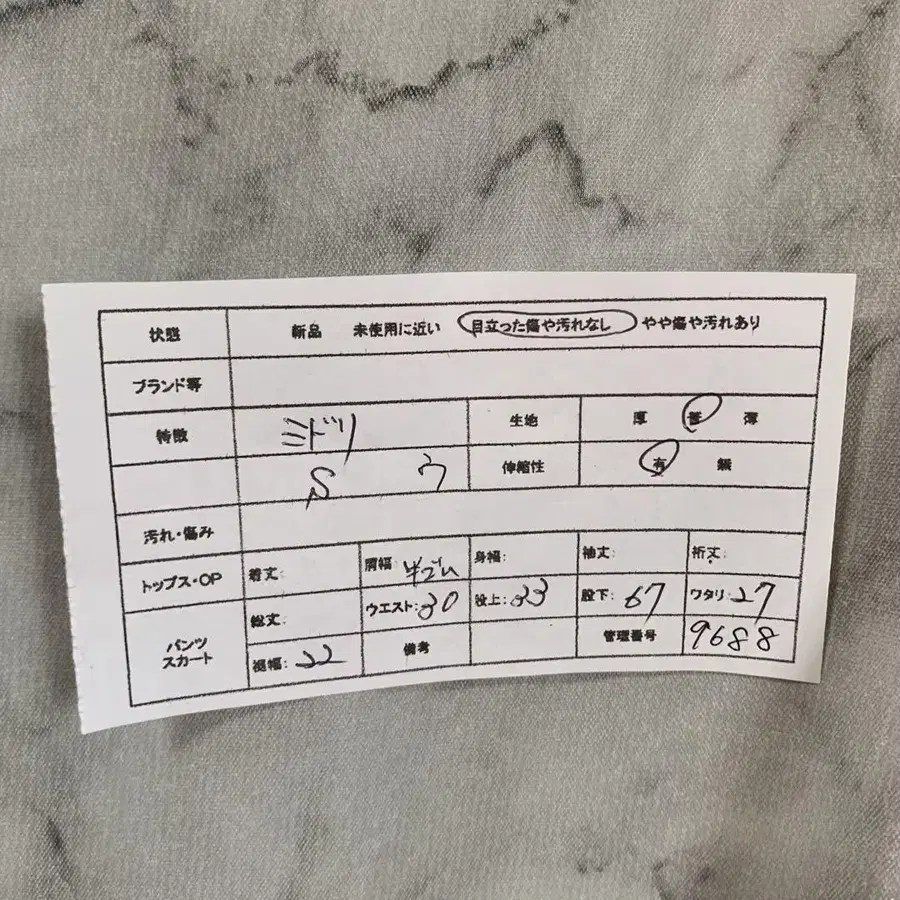 状態 新品 未使用に近い 目立った傷や汚れなし やや傷や汚れあり
ブランド等
特徴 ミドリ 生地 厚 普 薄
S ウ 伸縮性 有 無
汚れ・傷み
トップス・OP 着丈: 肩幅: 半ゴム 身幅: 袖丈: 裄丈:
パンツ スカート 総丈: ウエスト:30 股上:33 股下:67 ワタリ:27
裾幅:22 備考 管理番号 9688